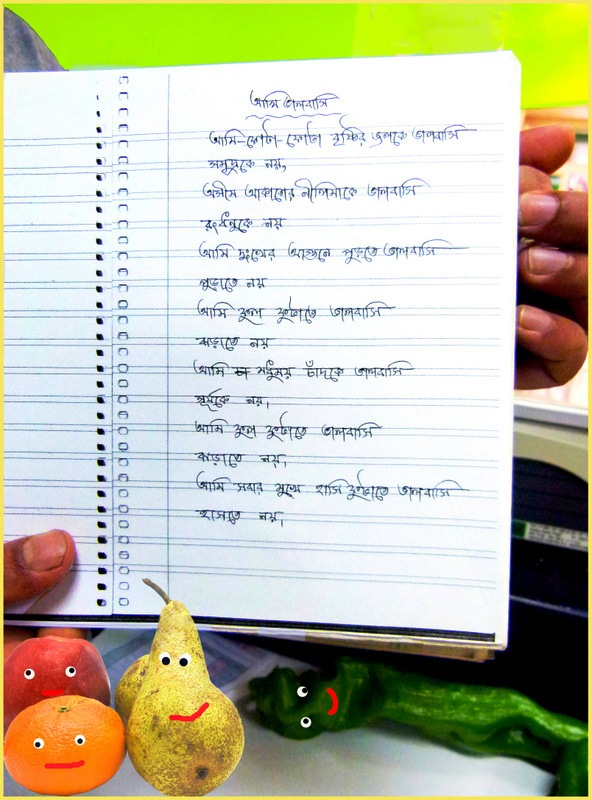 আমি ভালবাসি
আমি-ফোটা-ফোটা বৃষ্টির জলকে ভালবাসি
সমুদ্রকে নয়,
অসীম আকাশের নীলিমাকে ভালবাসি
রংধনুকে নয়
আমি দুঃখের আগুনে পুড়তে ভালবাসি
পুড়াতে নয়
আমি ফুল ফুটাতে ভালবাসি
ঝড়াতে নয়
আমি মধুময় চাঁদকে ভালবাসি
সূর্যকে নয়,
আমি ফুল ফুটাতে ভালবাসি
ঝড়াতে নয়,
আমি সবার মুখে হাসি ফুটাতে ভালবাসি
হাসতে নয়,